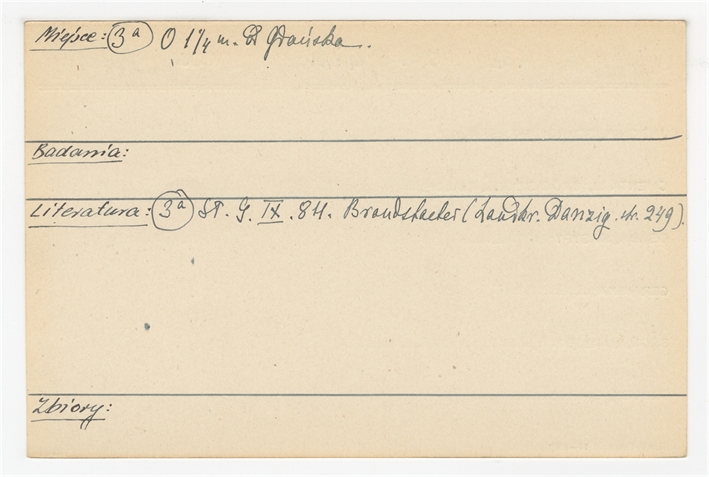 Miejsce: 3a O 1 1/4 m. Z Gdańska.
Badania:
Literatura: 3a St. G. IX. 84. Brandstaeter (Landkr. Danzig. str. 249).
Zbiory: